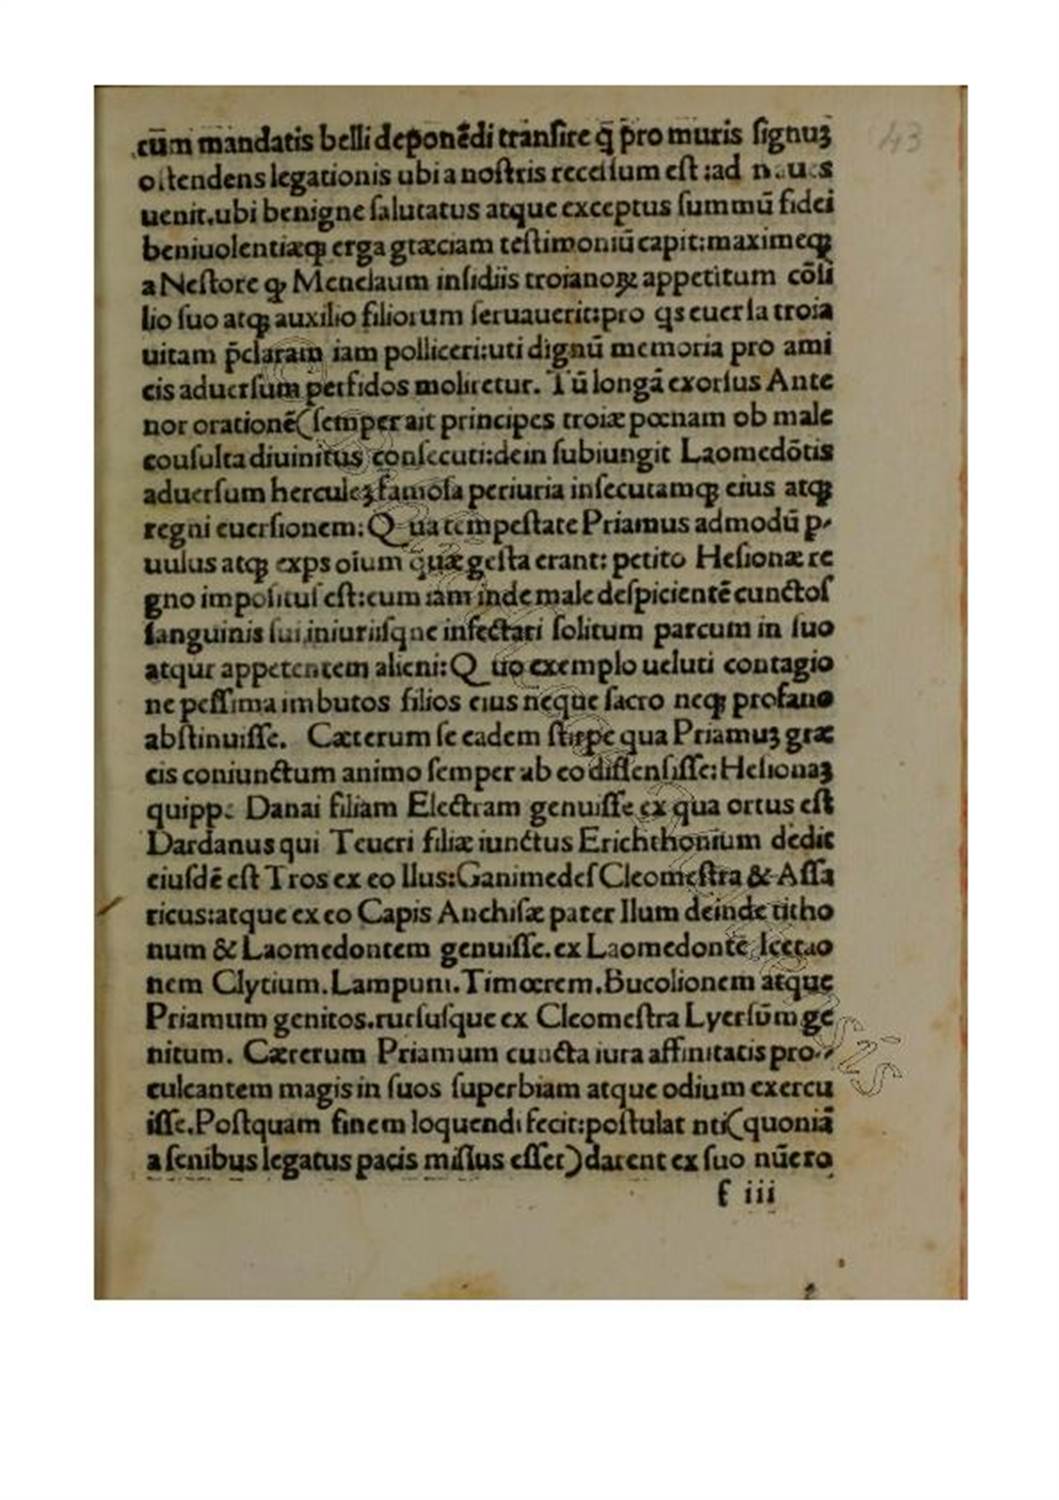 43
cūm mandatis belli deponēdi transire q̄ pro muris signuꝫ
ostendens legationis ubi a nostris recessum est :ad naues
uenit.ubi benigne salutatus atque exceptus summū fidei
beniuolentiæqꝫ erga græciam testimoniū capit:maximeqꝫ
a Nestore ꝙ Menelaum insidiis troianoꝝ appetitum cōsi
lio suo atqꝫ auxilio filiorum seruauerit:pro q̄s euersa troia
uitam p̄claram iam polliceri:uti dignū memoria pro ami
cis aduersum perfidos moliretur. Tū longā exorsus Ante
nor orationē(semper ait principes troiæ pœnam ob male
cousulta diuinitus consecuti:dein subiungit Laomedōtis
aduersum herculeꝫ famosa periuria insecutamqꝫ eius atqꝫ
regni euersionem:Qua tempestate Priamus admodū p-
uulus atqꝫ exps oīum quæ gesta erant: petito Hesionæ re
gno impositus est:eum iam inde male despicientē cunctos
sanguinis sui iniuriisque infectari solitum parcum in suo
atqur appetentem alieni:Quo exemplo ueluti contagio
ne pessima imbutos filios eius neque sacro neqꝫ profano
abstinuisse. Cæterum se eadem stirpe qua Priamuꝫ græ
cis coniunctum animo semper ab eo dissensisse:Hesionaꝫ
quippe Danai filiam Electram genuisse ex qua ortus est
Dardanus qui Teucri filiæ iunctus Erichthonium dedit
eiusdē est Tros ex eo Ilus:Ganimedes Cleomestra & Assa
ricus:atque ex eo Capis Anchisæ pater Ilum deinde titho
num & Laomedontem genuisse.ex Laomedonte Icetao
nem Clytium.Lampum.Timœrem.Bucolionem atque
Priamum genitos.rursusque ex Cleomestra Lyersūm ge
nitum. Cærerum Priamum cuncta iura affinitatis pro-
culcantem magis in suos superbiam atque odium exercu
isse.Postquam finem loquendi fecit:postulat nti(quoniā
a senibus legatus pacis missus esset)darent ex suo nūero
f iii